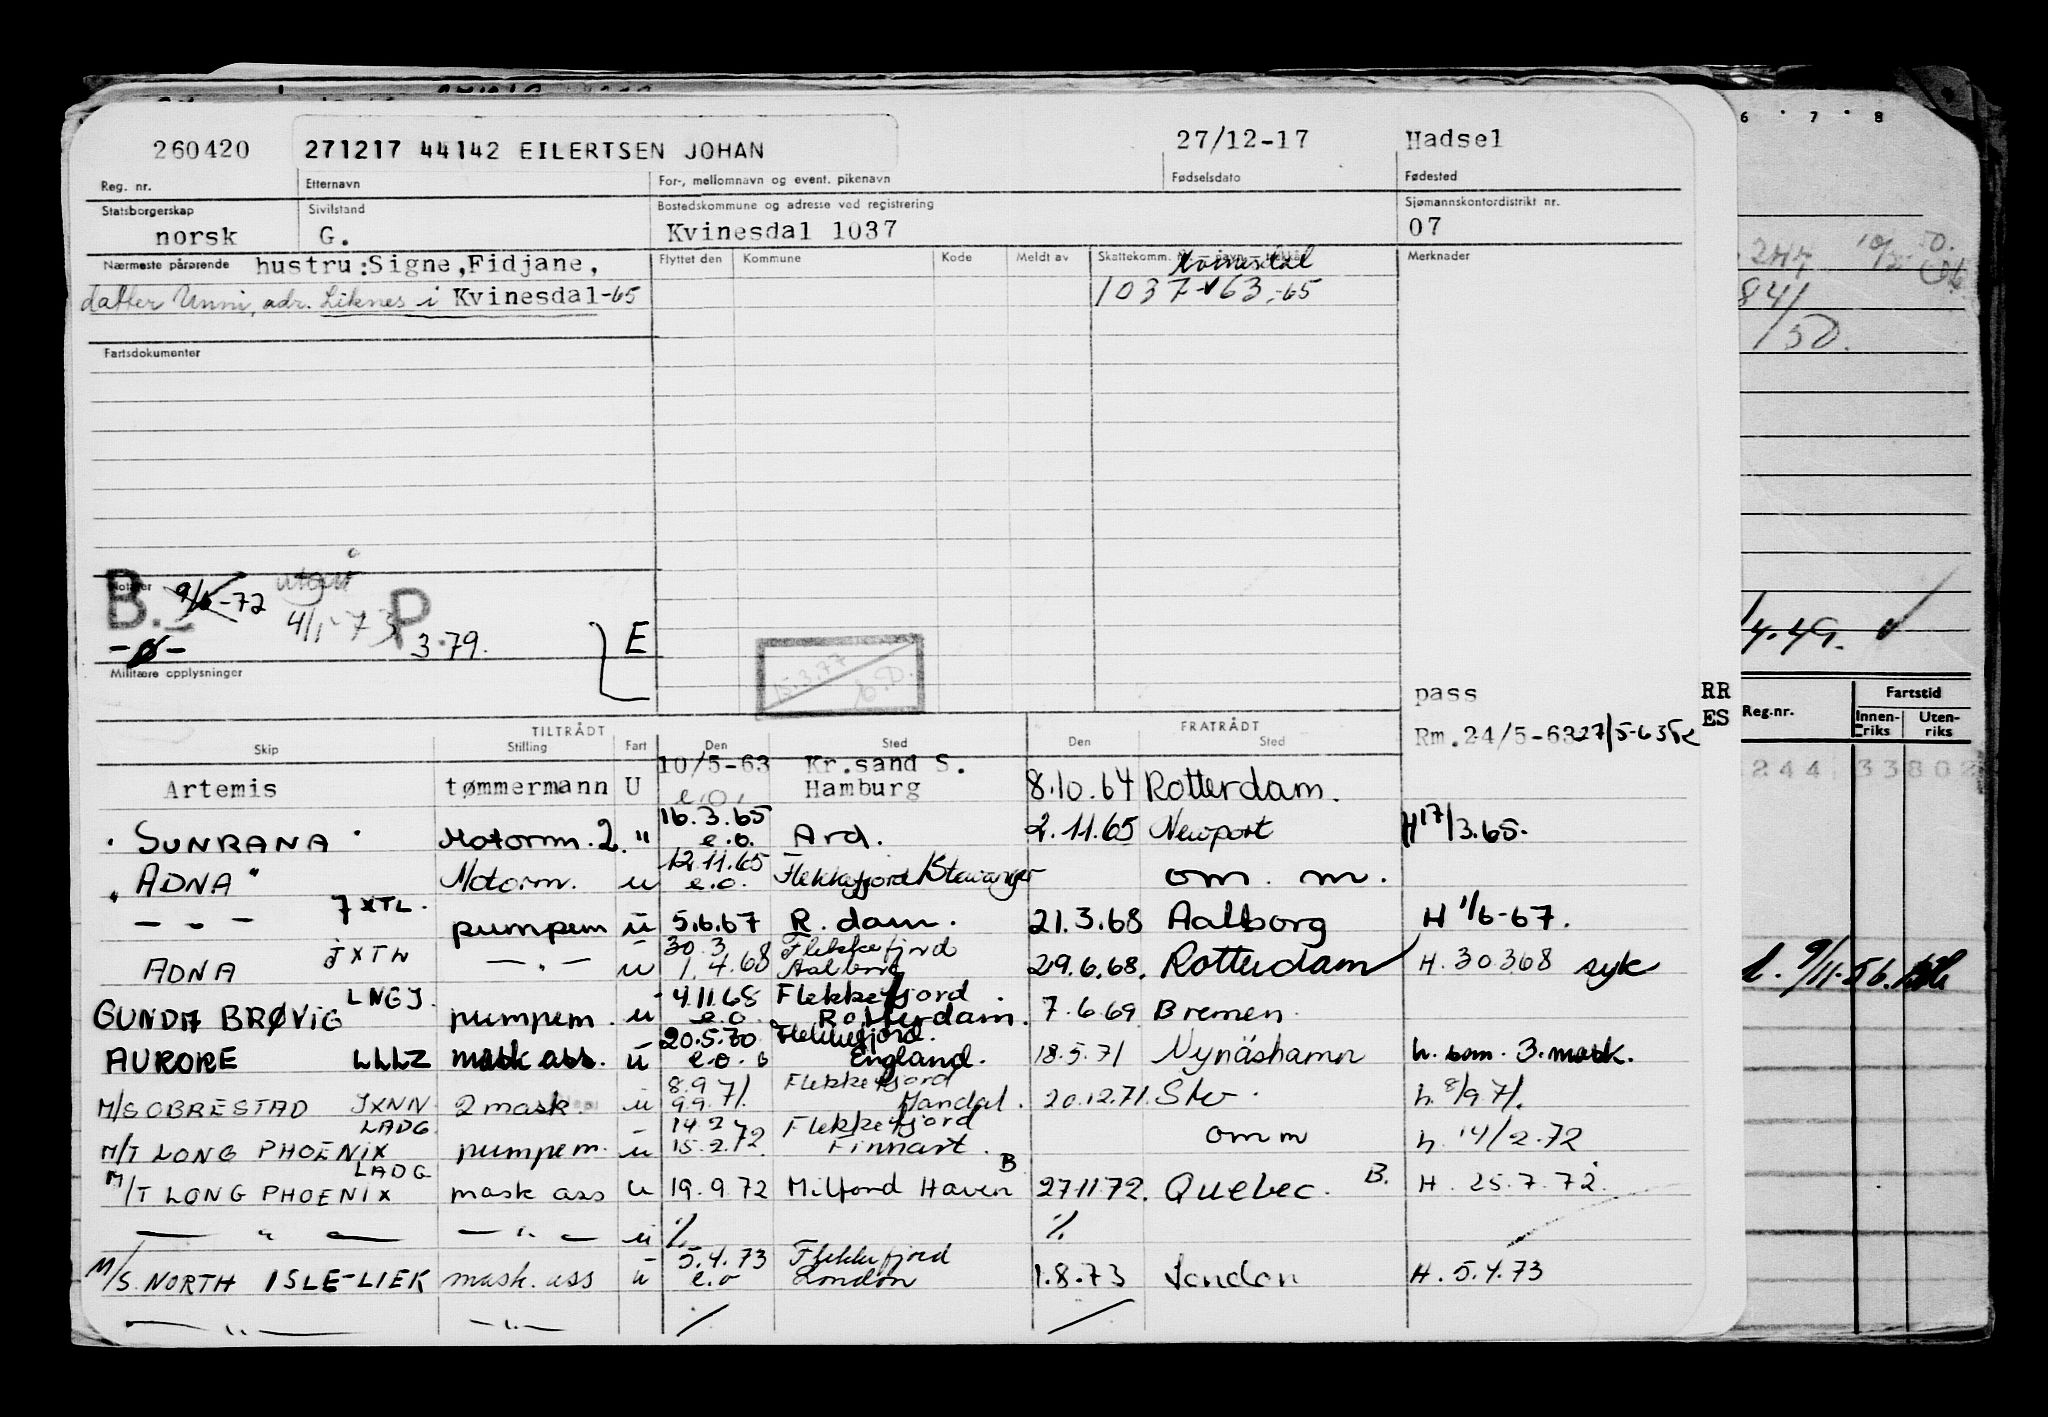 260420 271217 44142 EILERTSEN JOHAN 27/12-17 Hadsel
Reg. nr. Etternavn For-, mellomnavn og event. pikenavn Fødselsdato Fødested
Statsborgerskap Sivilstand Bostedskommune og adresse ved registrering Sjømannskontordistrikt nr.
norsk G. Kvinesdal 1037 07
Nærmeste pårørende hustru:Signe,Fidjane, Flyttet den Kommune Kode Meldt av Skattekomm. Kvinesdal Merknader
datter Unni, adr. Liknes i Kvinesdal-65 1037 63,-65
Fartsdokumenter
B. 9/6-72 4/1-73 P. 3.79. E
-ø-
Militære opplysninger
15.3.77
pass RR
Rm.24/5-63 27/5-63 ES
TILTRÅDT FRATRÅDT
Skip Stilling Fart Den Sted Den Sted
10/5-63 Kr.sand S.
Artemis tømmermann U e.o. Hamburg 8.10.64 Rotterdam.
16.3.65
SUNRANA Motorm. 2. " e.o. Ard. 2.11.65 Newport H 17/3.65.
12.11.65
"ADNA" Motorm. u e.o. Flekkefjord Stavanger om. m.
JXTL.
— " — pumpem u 5.6.67 R.dam. 21.3.68 Aalborg H 1/6-67.
30.3 Flekkefjord
ADNA — " — u 1.4.68 Aalborg 29.6.68. Rotterdam H. 30368 syk
LNGJ 4.11.68 Flekkefjord.
GUNDA BRØVIG pumpem. u e.o. Rotterdam. 7.6.69 Bremen.
20.5.70 Flekkefjord.
AURORE LLLZ mask ass. u e.o. England. 18.5.71 Nynäshamn h. som. 3. mask.
8.9 71. Flekkefjord
M/S OBRESTAD JXNN 2 mask. u 9.9. Mandal. 20.12.71. Stv. h. 8/9 71.
LADG 14 2 Flekkefjord
M/T LONG PHOENIX pumpem. u 15.2.72. Finnart. omm h. 14/2.72
LADG B
M/T LONG PHOENIX mask ass u 19.9.72 Milford Haven 27.11.72. Quebec. B. H. 25.7.72.
— " — — " — u ٪ ٪
5.4.73 Flekkefjord
M/S. NORTH ISLE-LIEK mask. ass u e.o London 1.8.73 London H. 5.4.73
— " — — " —
6 · 7 · 8
244
84/
/50.
4.49.
Reg.nr. Fartstid
Innenriks Utenriks
244 33802
9/11-56.